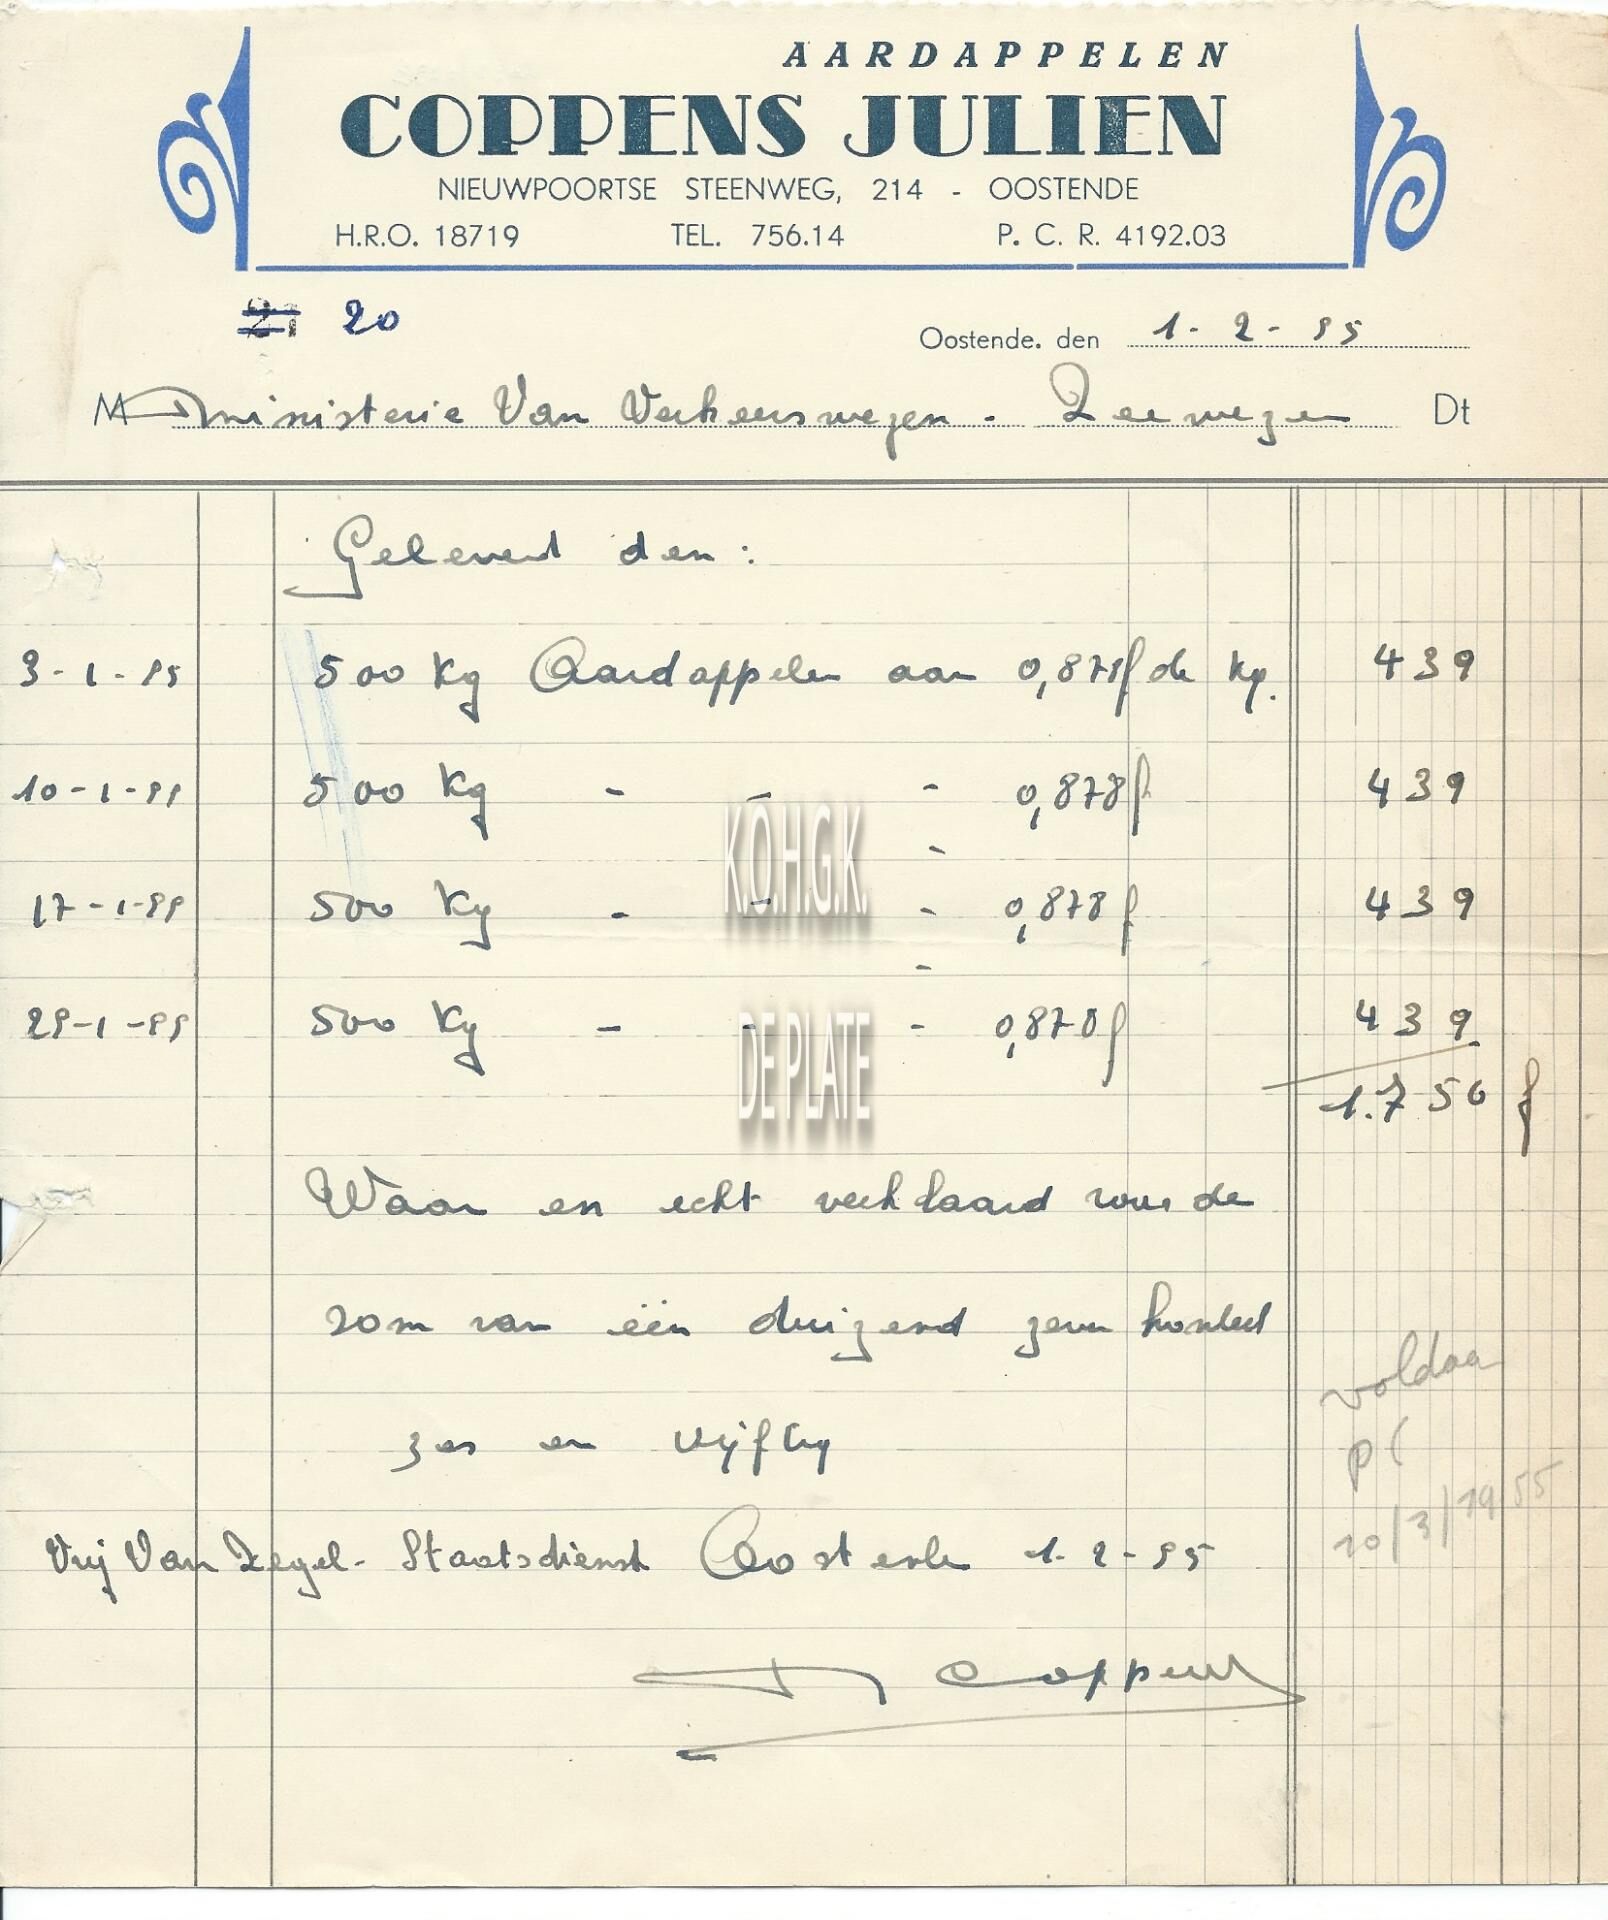 AARDAPPELEN
COPPENS JULIEN
NIEUWPOORTSE STEENWEG, 214 - OOSTENDE
H.R.O. 18719 TEL. 756.14 P. C. R. 4192.03
21 20
Oostende. den 1-2-55
M Ministerie Van Verkeerswezen - Zeewezen Dt
Geleverd den:
3-1-55 500 Kg Aardappelen aan 0,878f de kg. 439
10-1-55 500 Kg - - - 0,878f 439
-
17-1-55 500 Kg - - - 0,878f 439
-
500 Kg - - - 0,878f 439
1.756 f
Waar en echt verklaard voor de
som van één duizend zeven honderd
zes en vijftig
voldaan
10/3/1955
Vrij Van Zegel - Staatsdienst Oostende 1-2-55
Coppens
K.O.H.G.K.
DE PLATE